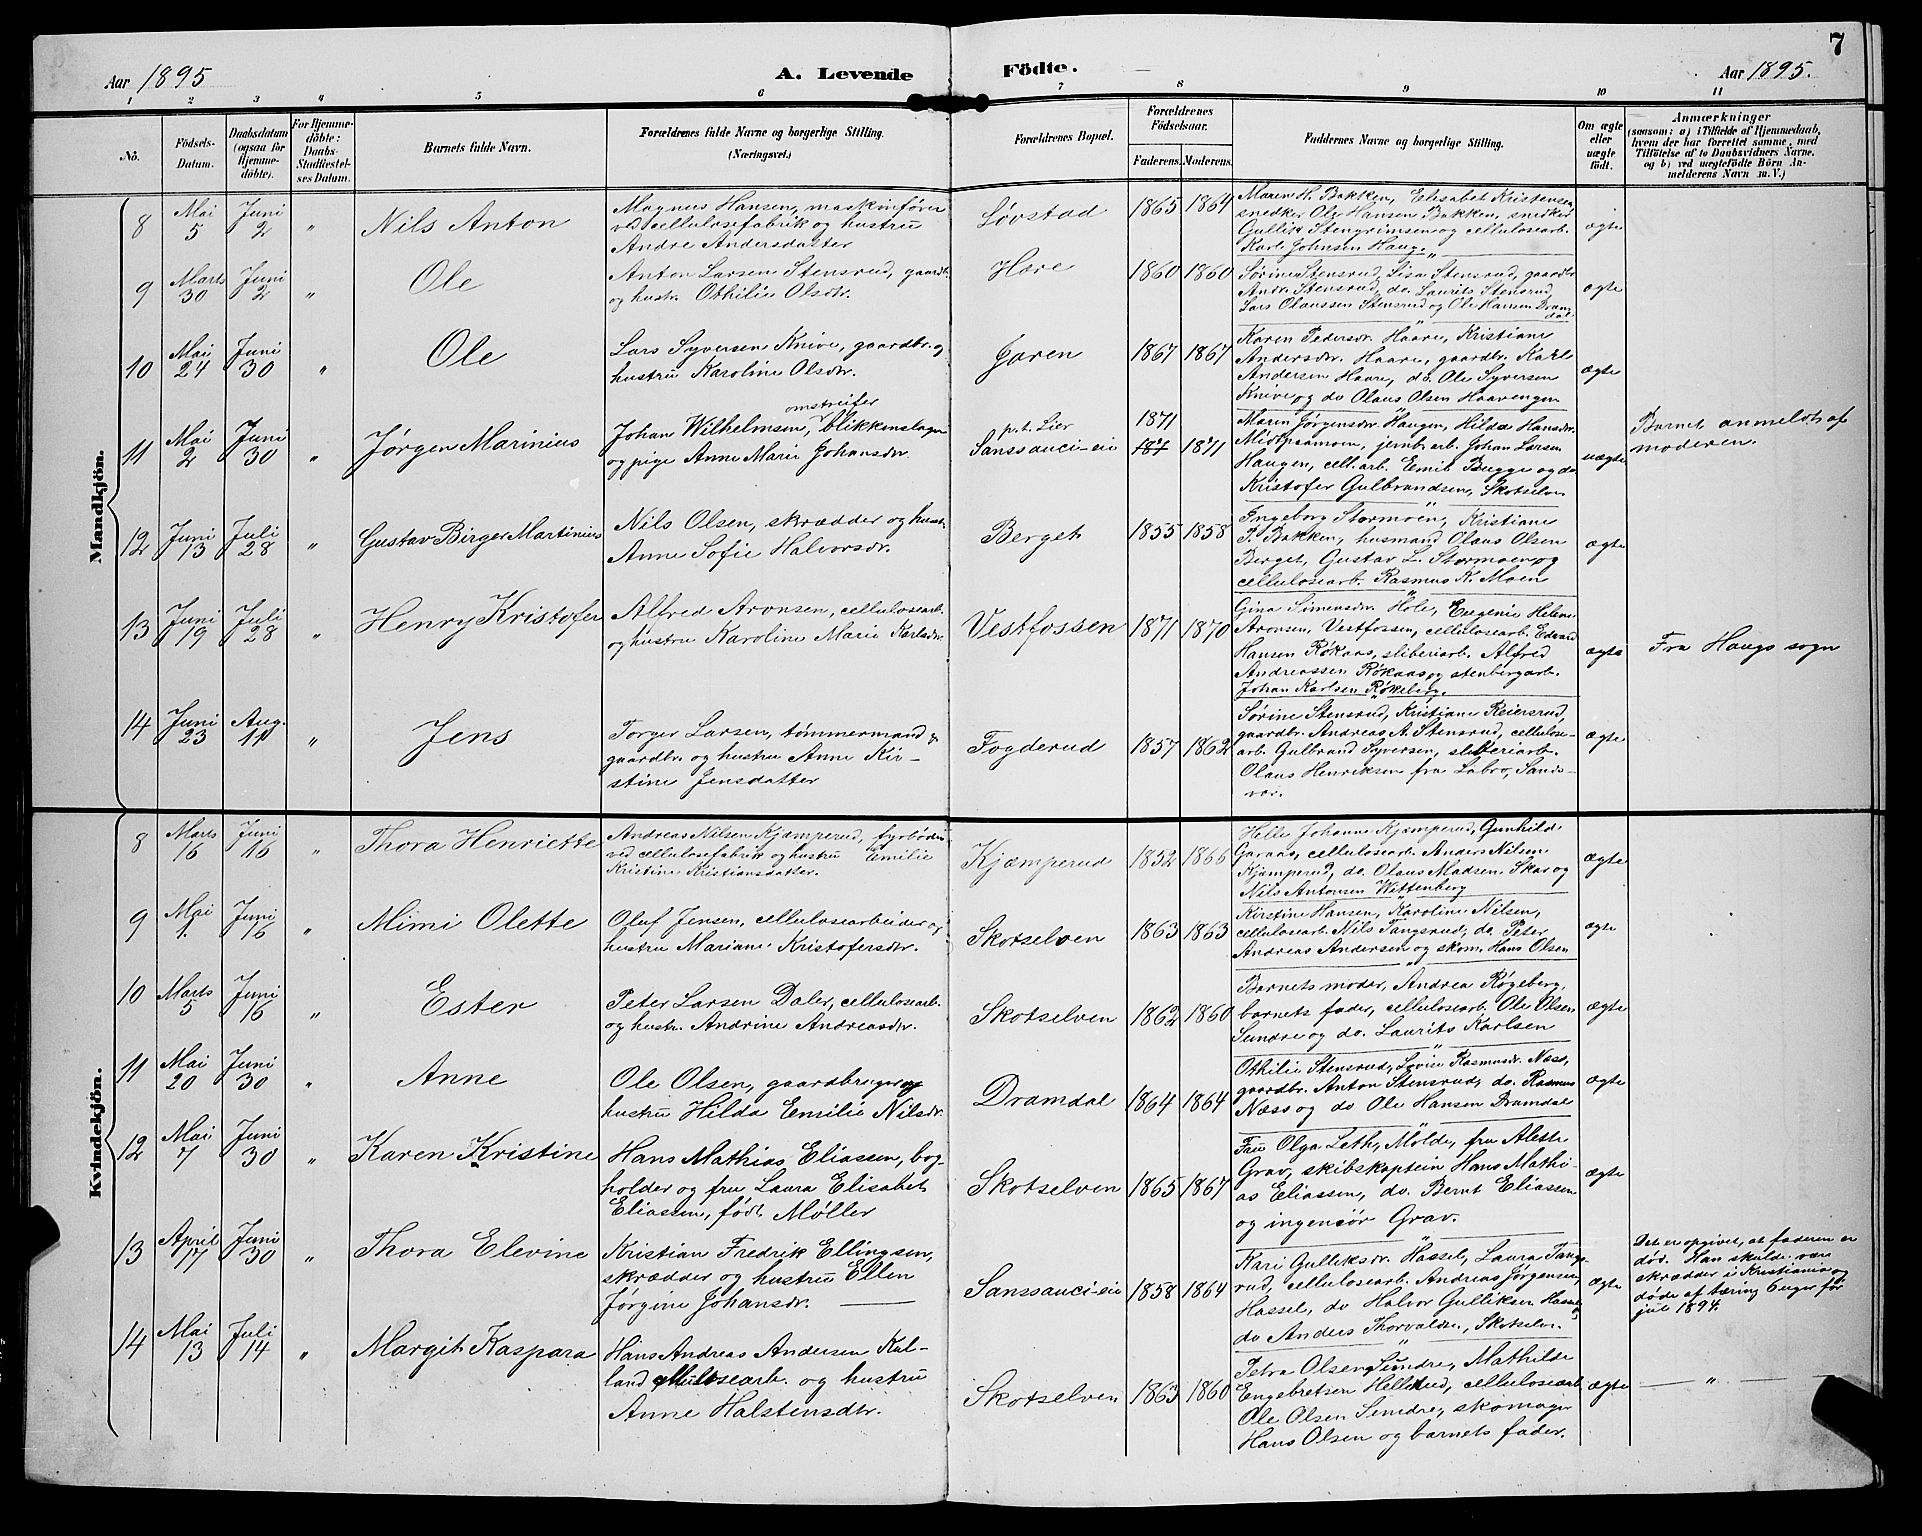 7
Aar 1895 A. Levende Födte. Aar 1895.
1 2 3 4 5 6 7 8 9 10 11
No.
Födsels-
Datum.
Daabsdatum
(ogsaa for
Hjemme-
döbte).
For Hjemme-
döbte:
Daabs-
Stadfestel-
ses Datum.
Barnets fulde Navn.
Forældrenes fulde Navne og borgerlige Stilling.
(Næringsvei.)
Forældrenes Bopæl.
Forældrenes
Födselsaar.
Faderens. Moderens.
Faddernes Navne og borgerlige Stilling.
Om ægte
eller
uægte
født.
Anmærkninger
(saasom: a) i Tilfælde af Hjemmedaab,
hvem der har forrettet samme, med
Tilföielse af to Daabsvidners Navne,
og b) ved uægtefödte Börn An-
melderens Navn m. V.)
Mandkjön.
8 Mai 5 Juni 2 " Nils Anton
Magnus Hansen, maskinfører
ved cellulosefabrik og hustru
Andre Andersdatter
Løvstad 1865 1864
Maren H. Bakken, Elisabet Kristensen,
snedker Ole Hansen Bakken, snedker
Gullik Stengrimsen og cellulosearb.
Karl Johnsen Haug.
ægte
9 Marts 30 Juni 2 " Ole
Anton Larsen Stensrud, gaardb.
og hustr. Othilie Olsdr.
Hære 1860 1860
Sørine Stensrud, Lisa Stensrud, gaardbr.
Andr. Stensrud, do. Laurits Stensrud,
Lars Olaussen Stensrud og Ole Hansen Dram-
dal.
ægte
10 Mai 24 Juni 30 " Ole
Lars Syversen Knive, gaardbr. og
hustru Karoline Olsdr.
Jaren 1867 1867
Karen Pedersdr. Haare, Kristiane
Andersdr. Haare, gaardbr. Karl
Andersen Haare, do. Ole Syversen
Knive og do Olaus Olsen Haavengen
ægte
11 Mai 2 Juni 30 " Jørgen Marinius
omstreifer
Johan Wilhelmsen, blikkenslager
og pige Anne Marie Johansdr.
p.t. Lier
Sanssouci-eie
1871
187 1871
Maren Jørgensdr. Haugen, Hilda Hansdr.
Midtskamoen, jernb.arb. Johan Larsen
Haugen, cell.arb. Emil Bugge og do
Kristofer Gulbrandsen, Skotselv.
uægte
Barnet anmeldt af
moderen.
12 Juni 13 Juli 28 " Gustav Birger Martinius
Nils Olsen, skrædder og hust.
Anne Sofie Halvorsdr.
Berget 1855 1858
Ingeborg Stormoen, Kristiane
P. Bakken, husmand Olaus Olsen
Berget, Gustav L. Stormoen og
cellulosearb. Rasmus K. Moen
ægte
13 Juni 19 Juli 28 " Henry Kristofer
Alfred Aronsen, cellulosearb.
og hustru Karoline Marie Karlsdr.
Vestfossen 1871 1870
Gina Simensdr. Hole, Eugenie Helene
Aronsen, Vestfossen, cellulosearb. Edvard
Hansen Røkaas, sliberiarb. Alfred
Andreassen Røkaas og stenbergarb.
Johan Karlsen Røkeberg.
ægte
Fra Haugs sogn
14 Juni 23 Aug. 11 " Jens
Torger Larsen, tømmermand &
gaardbr. og hustru Anne Kir-
stine Jensdatter
Fogderud 1857 1862
Sørine Stensrud, Kristiane Reiersrud,
gaardbr. Andreas A. Stensrud, cellulose-
arb. Gulbrand Syversen, sliberiarb.
Olaus Henriksen fra Labro, Sands-
vær.
ægte
Kvindekjön.
8 Marts 16 Juni 16 " Thora Henriette
Andreas Nilsen Kjæmperud, fyrbøder
ved cellulosefabrik og hustru Emilie
Kristine Kristiansdatter.
Kjæmperud 1852 1866
Helle Johanne Kjæmperud, Gunhild
Garaas, cellulosearb. Anders Nilsen
Kjæmperud, do. Olaus Madsen Skar og
Nils Antonsen Wittenberg
ægte
9 Mai 1. Juni 16 " Mimi Olette
Oluf Jensen, cellulosearbeider og
hustru Mariane Kristofersdr.
Skotselven 1863 1863
Kirstine Hansen, Karoline Nilsen,
cellulosearb. Nils Tangsrud, do. Peter
Andreas Andersen og skom. Hans Olsen
ægte
10 Marts 5 Juni 16 " Ester
Peter Larsen Daler, cellulosearb.
og hustr. Andrine Andreasdr.
Skotselven 1862 1860
Barnets moder, Andrea Røgeberg,
barnets fader, cellulosearb. Ole Olsen
Sundre og do. Laurits Karlsen
ægte
11 Mai 20 Juni 30 " Anne
Ole Olsen, gaardbruger og
hustru Hilda Emilie Nilsdr.
Dramdal 1864 1864
Othilie Stensrud, Lovise Rasmusdr. Næss,
gaardbr. Anton Stensrud, do. Rasmus
Næss og do Ole Hansen Dramdal
ægte
12 Mai 7 Juni 30 " Karen Kristine
Hans Mathias Eliassen, bog-
holder og fru Laura Elisabet
Eliassen, født Møller
Skotselven 1865 1867
Fru Olga Leth, Molde, fru Alette
Grav, skibskaptein Hans Mathi-
as Eliassen, do. Bernt Eliassen
og ingeniør Grav.
ægte
13 April 17 Juni 30 " Thora Elevine
Kristian Fredrik Ellingsen,
skrædder og hustru Ellen
Jørgine Johansdr.
Sanssouci-eie 1858 1864
Kari Gulliksdr. Hassel, Laura Tangs-
rud, cellulosearb. Andreas Jørgensen
Hassel, do Halvor Gulliksen Hassel,
do Anders Thorvaldsen, Skotselv.
ægte
Det er opgivet, at faderen er
død. Han skulde være
skrædder i Kristiania og
døde af tæring 6 uger før
jul 1894.
14 Mai 13 Juli 14 " Margit Kaspara
Hans Andreas Andersen Kal-
land cellulosearb. og hustru
Anne Halstensdtr.
Skotselven 1863 1860
Petra Olsen Sundre, Mathilde
Engebretsen Hellerud, cellulosearb.
Ole Olsen Sundre, skomager
Hans Olsen og barnets fader.
ægte
— " —